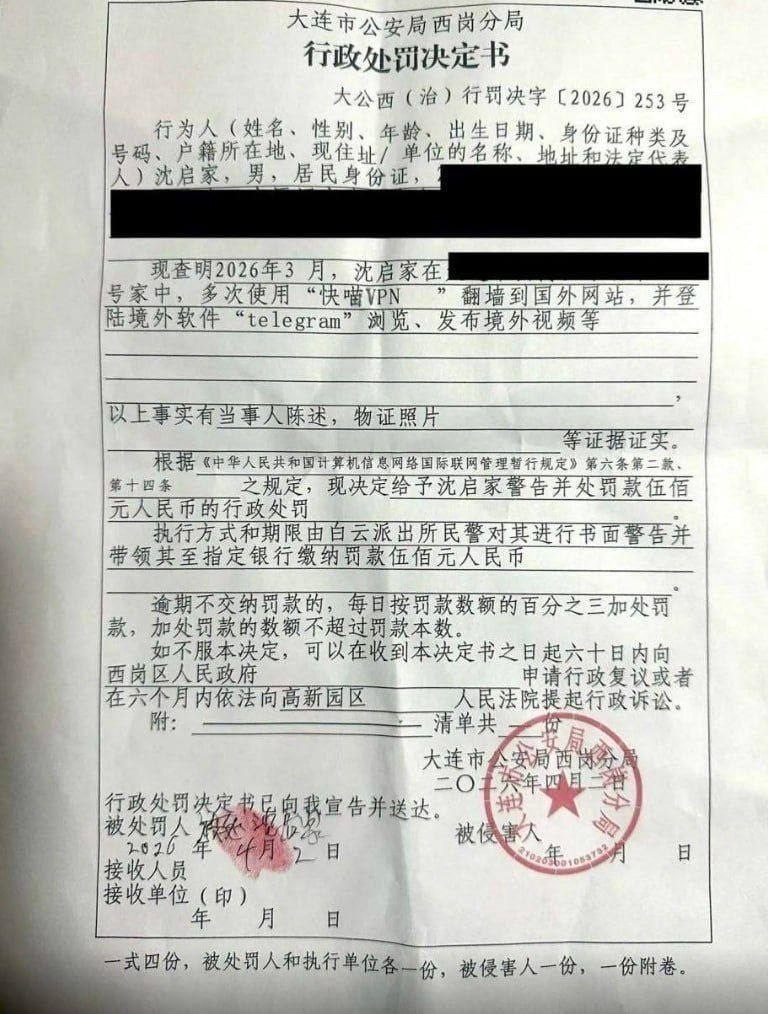 大连市公安局西岗分局
行政处罚决定书
大公西（治）行罚决字〔2026〕253号
行为人（姓名、性别、年龄、出生日期、身份证种类及
号码、户籍所在地、现住址/单位的名称、地址和法定代表
人）沈启家，男，居民身份证，
现查明2026年3月，沈启家在
号家中，多次使用“快喵VPN ”翻墙到国外网站，并登
陆境外软件“telegram”浏览、发布境外视频等
，
以上事实有当事人陈述，物证照片
等证据证实。
根据《中华人民共和国计算机信息网络国际联网管理暂行规定》第六条第二款、
第十四条 之规定，现决定给予沈启家警告并处罚款伍佰
元人民币的行政处罚 。
执行方式和期限由白云派出所民警对其进行书面警告并
带领其至指定银行缴纳罚款伍佰元人民币
。
逾期不交纳罚款的，每日按罚款数额的百分之三加处罚
款，加处罚款的数额不超过罚款本数。
如不服本决定，可以在收到本决定书之日起六十日内向
西岗区人民政府 申请行政复议或者
在六个月内依法向高新园区 人民法院提起行政诉讼。
附： 清单共 份
大连市公安局西岗分局
二〇二六年四月二日
大连市公安局西岗分局
210203001053732
行政处罚决定书已向我宣告并送达。
被处罚人 沈启家 被侵害人
2026 年 4 月 2 日 年 月 日
接收人员
接收单位（印）
年 月 日
一式四份，被处罚人和执行单位各一份，被侵害人一份，一份附卷。